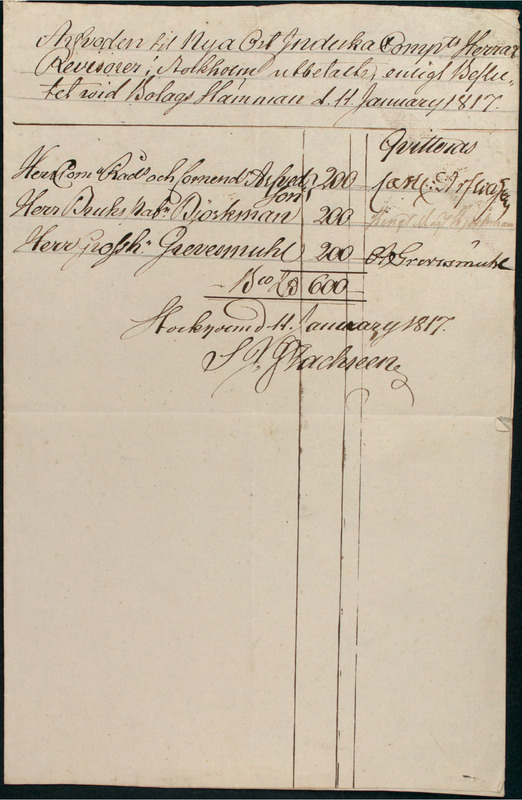 Arfvoden til Nya Ost Indiska Comp:ts Herrar
Revisorer i Stockholm utbetalte, enligt Beslu-
tet wid Bolags Stämman d. 11 January 1817.
Qvitteras
Herr Com: Råd: och Comend: Arfved- 200 Carl C: Arfwedson
son
Herr Bruks Pat:n Björkman 200 Björkman
Herr Grossh:n Grevesmuhl 200 Grevesmuhl
B:co 600
Stockholm d. 11 January 1817.